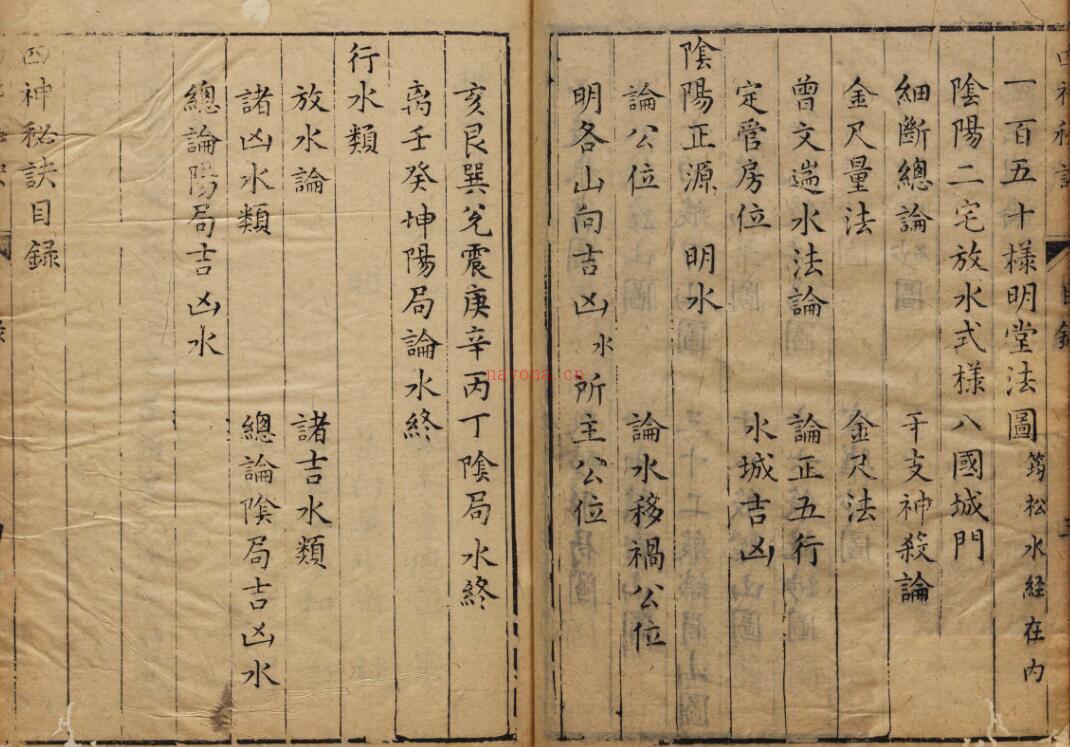 一百五十様明堂法圖 筠松水経在内
陰陽二宅放水式樣八國城門
細斷總論 干支神殺論
金尺量法 金尺法
曾文遄水法論 論正五行
定管房位 水城吉凶
陰陽正源 明水
論公位 論水移禍公位
明各山向吉凶水所主公位
亥艮巽兊震庚辛丙丁陰局水終
离壬癸坤陽局論水終
行水類
放水論 諸吉水類
諸凶水類 總論陰局吉凶水
總論陽局吉凶水
四神秘訣目録
nayona.cn